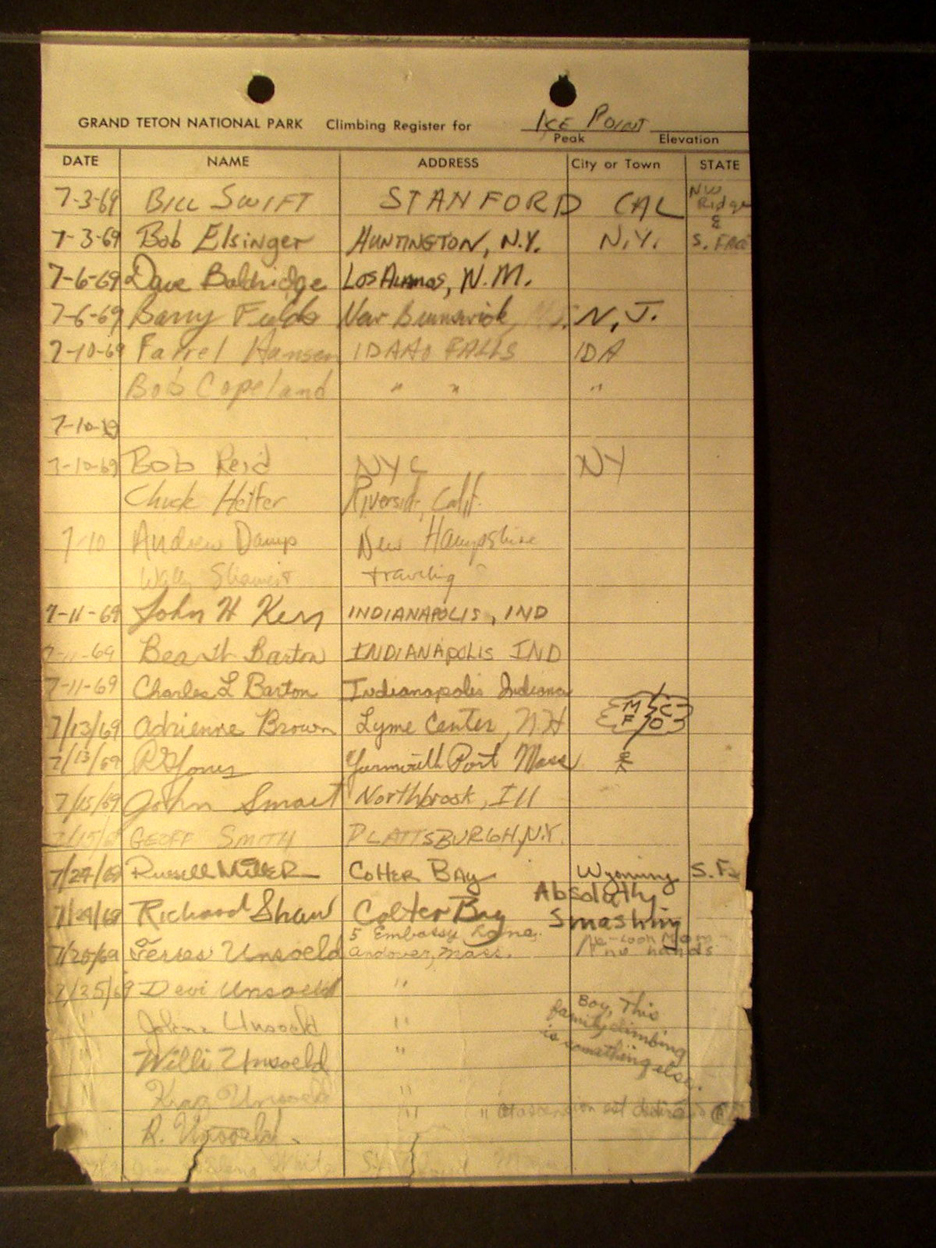 ICE POINT
GRAND TETON NATIONAL PARK Climbing Register for
Peak Elevation
DATE NAME ADDRESS City or Town STATE
7-3-69 BILL SWIFT STANFORD CAL NW Ridge &
7-3-69 Bob Elsinger HUNTINGTON, N.Y. N.Y. S. FACE
7-6-69 Dave Baldridge Los Alamos, N.M.
7-6-69 Barry Fields New Brunswick, N.J.
7-10-69 Farrel Hansen IDAHO FALLS IDA
Bob Copeland " " "
7-10-69
7-10-69 Bob Reid NYC NY
Chuck Riverside, Calif.
7-10 Andrew Damp New Hampshire
Wally traveling
7-11-69 John H Kerr INDIANAPOLIS, IND
7-11-69 Barton INDIANAPOLIS IND
7-11-69 Charles L Barton Indianapolis Indiana
7/13/69 Adrienne Brown Lyme Center, NH M C F O
7/13/69 Yarmouth Port Mass
7/15/69 John Smart Northbrook, Ill
7/15/69 GEOFF SMITH PLATTSBURGH, N.Y.
7/24/69 Russell Miller Colter Bay Wyoming S. F.
7/24/69 Richard Shaw Colter Bay Absolutly Smashing
Unsoeld 5 Embassy Lane. Andover, Mass. no hands
Devi Unsoeld "
Jolene Unsoeld " Boy, This family climbing is something else.
Willi Unsoeld "
Krag Unsoeld " "
R. Unsoeld.